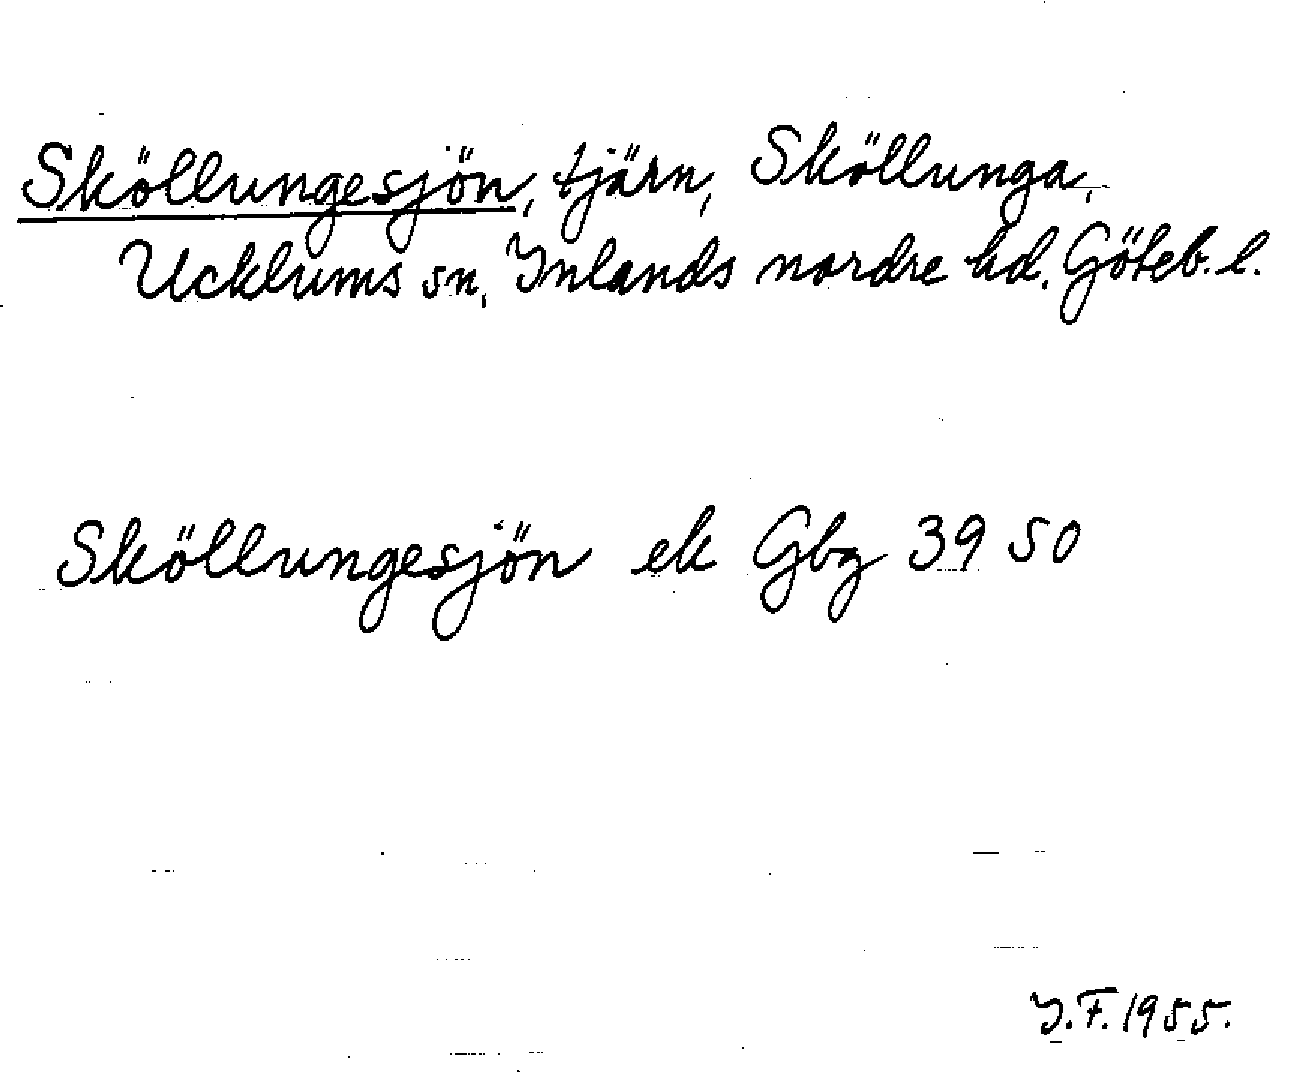 Sköllungesjön, tjärn, Sköllunga,
Ucklums sn, Inlands nordre hd. Göteb. l.
Sköllungesjön ek Gbg 39 50
I.F. 1955.